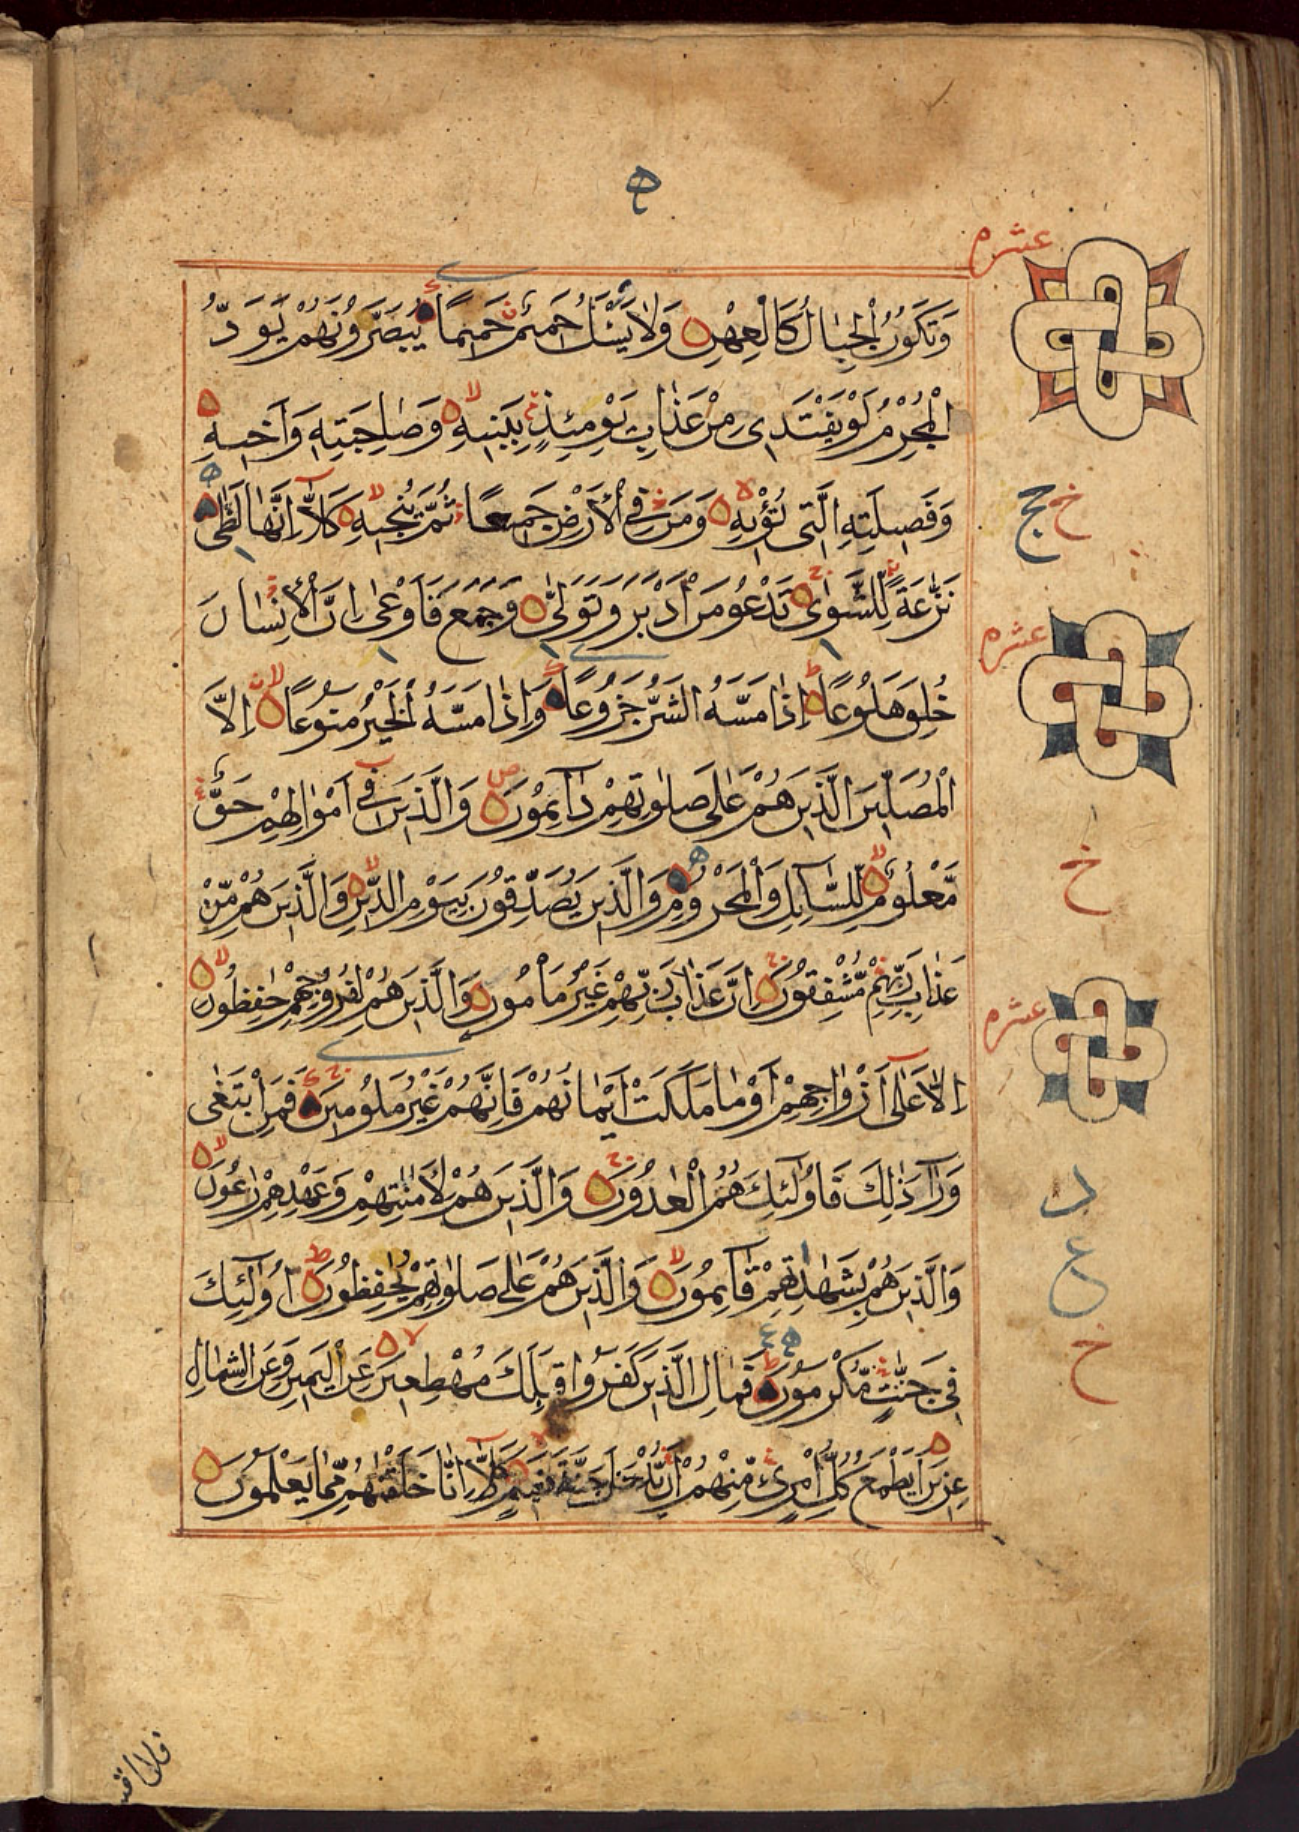 عشر م
وَتَكُونُ الْجِبَالُ كَالْعِهْنِ وَلَا يَسْـَٔلُ حَمِيمٌ حَمِيمًا يُبَصَّرُونَهُمْ يَوَدُّ
الْمُجْرِمُ لَوْ يَفْتَدِى مِنْ عَذَابِ يَوْمِئِذٍ بِبَنِيهِ وَصَاحِبَتِهِ وَأَخِيهِ
وَفَصِيلَتِهِ الَّتِى تُؤْيهِ وَمَنْ فِى الْأَرْضِ جَمِيعًا ثُمَّ يُنْجِيهِ كَلَّا إِنَّهَا لَظَى
خ ج
نَزَّعَةً لِلشَّوَى تَدْعُو مَنْ أَدْبَرَ وَتَوَلَّى وَجَمَعَ فَأَوْعَى إِنَّ الْإِنْسَانَ
عشر م
خُلِقَ هَلُوعًا إِذَا مَسَّهُ الشَّرُّ جَزُوعًا وَإِذَا مَسَّهُ الْخَيْرُ مَنُوعًا إِلَّا
الْمُصَلِّينَ الَّذِينَ هُمْ عَلَى صَلٰوتِهِمْ دَآئِمُونَ وَالَّذِينَ فِى أَمْوَالِهِمْ حَقٌّ
خ
مَّعْلُومٌ لِّلسَّآئِلِ وَالْمَحْرُومِ وَالَّذِينَ يُصَدِّقُونَ بِيَوْمِ الدِّينِ وَالَّذِينَ هُمْ مِّنْ
عَذَابِ رَبِّهِمْ مُّشْفِقُونَ إِنَّ عَذَابَ رَبِّهِمْ غَيْرُ مَأْمُونٍ وَالَّذِينَ هُمْ لِفُرُوجِهِمْ حٰفِظُونَ
عشر م
إِلَّا عَلَى أَزْوَاجِهِمْ أَوْ مَا مَلَكَتْ أَيْمَانُهُمْ فَإِنَّهُمْ غَيْرُ مَلُومِينَ فَمَنِ ابْتَغَى
وَرَآءَ ذٰلِكَ فَأُولٰٓئِكَ هُمُ الْعٰدُونَ وَالَّذِينَ هُمْ لِأَمٰنٰتِهِمْ وَعَهْدِهِمْ رٰعُونَ
وَالَّذِينَ هُمْ بِشَهٰدٰتِهِمْ قَآئِمُونَ وَالَّذِينَ هُمْ عَلَى صَلٰوتِهِمْ يُحَافِظُونَ أُولٰٓئِكَ
ع
خ
فِى جَنّٰتٍ مُّكْرَمُونَ فَمَالِ الَّذِينَ كَفَرُوا قِبَلَكَ مُهْطِعِينَ عَنِ الْيَمِينِ وَعَنِ الشِّمَالِ
عِزِينَ أَيَطْمَعُ كُلُّ امْرِئٍ مِّنْهُمْ أَنْ يُدْخَلَ جَنَّةَ نَعِيمٍ كَلَّا إِنَّا خَلَقْنٰهُمْ مِّمَّا يَعْلَمُونَ